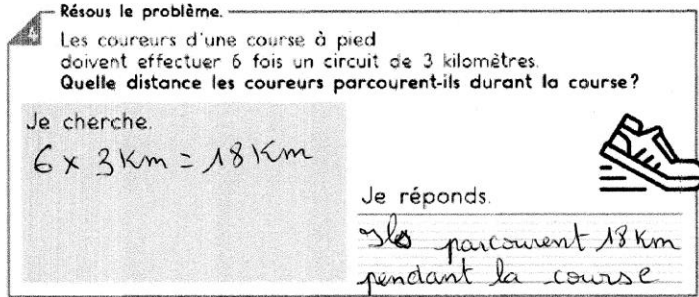 Résous le problème.
Les coureurs d'une course à pied
doivent effectuer 6 fois un circuit de 3 kilomètres.
Quelle distance les coureurs parcourent-ils durant la course?
Je cherche.
6 x 3 Km = 18 Km
Je réponds.
Ils parcourent 18 Km
pendant la course